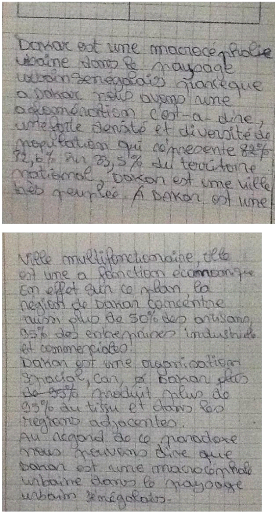 Dakar est une macrocephalie
urbaine dans le paysage
urbain senegalais parceque
a Dakar nous avons une
agglomération c'est-a-dire,
une forte densité et diversité de
population qui represente 22%
22,6% sur 23,5% du territoire
national, Dakar est une ville
très peuplée. A Dakar est une
Ville multifonctionaire, elle
est une a fonction économique
en effet sur ce plan la
region de Dakar concentre
aussi plus de 50% des artisans,
95% des entreprises industriels
et commerciales.
Dakar est une organisation
spacial, car, à Dakar plus
de 95% produit plus de
95% du tissu et dans les
regions adjacentes.
Au regard de ce paradoxe
nous pouvons dire que
Dakar est une macrocephalie
urbaine dans le paysage
urbain sénégalais.